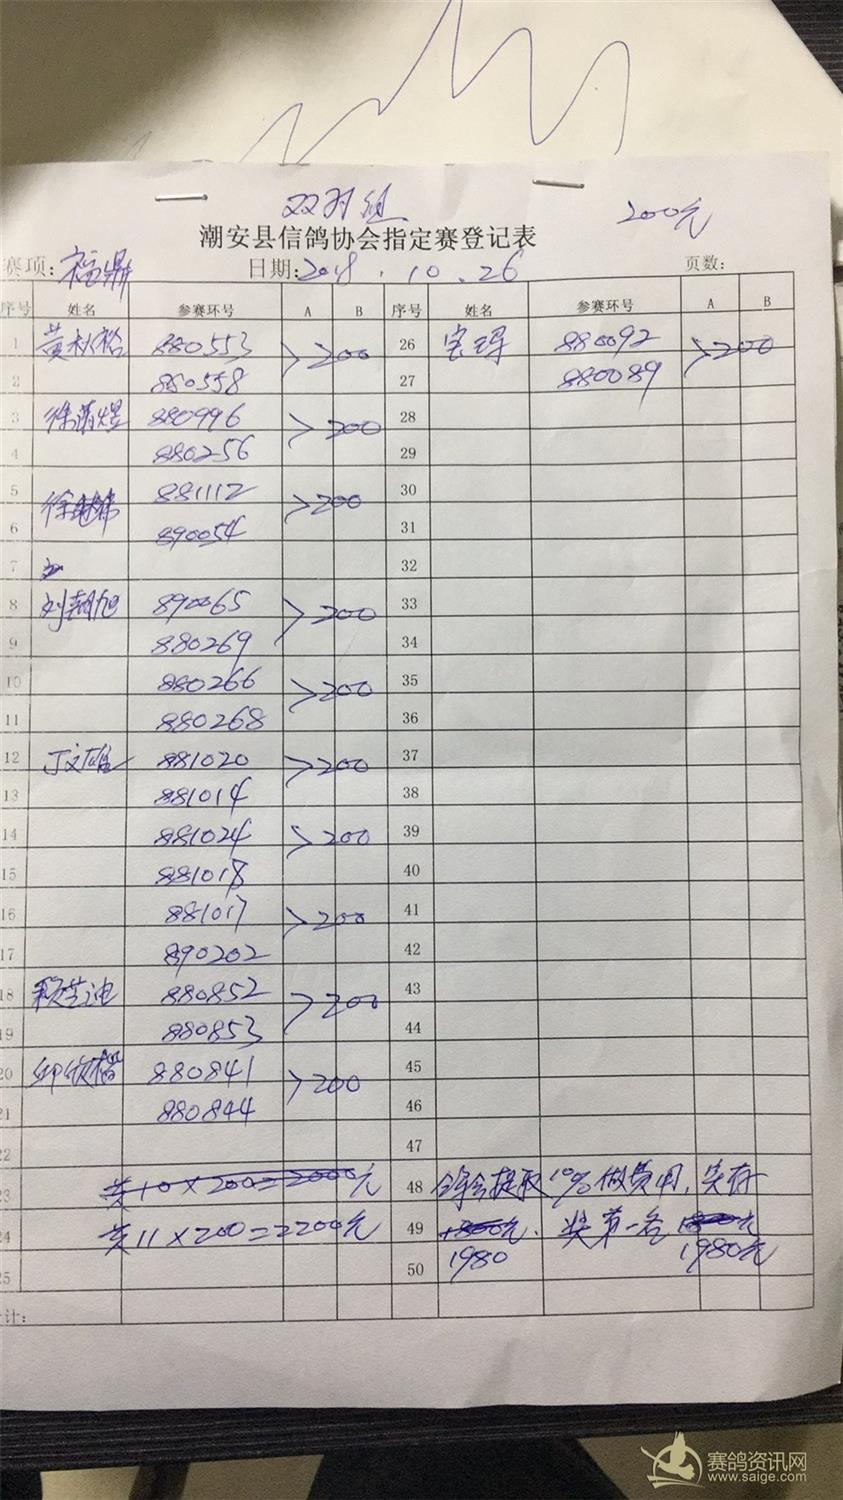 双羽组 200元
潮安县信鸽协会指定赛登记表
赛项:福鼎 日期:2018.10.26 页数:
序号 姓名 参赛环号 A B 序号 姓名 参赛环号 A B
1 880553 >200 26 880092 >200
2 880558 27 880089
3 880996 >200 28
4 880256 29
5 881112 >200 30
6 890054 31
7 32
8 刘朝旭 890065 >200 33
9 880269 34
10 880266 >200 35
11 880268 36
12 丁文雄 881020 >200 37
13 881014 38
14 881024 >200 39
15 881018 40
16 881017 >200 41
17 890202 42
18 880852 >200 43
19 880853 44
20 880841 >200 45
21 880844 46
22 47
23 共10×200=2000元 48 鸽会提取10%做费用,实存
24 共11×200=2200元 49 1800元. 奖第一名1800元
25 50 1980 1980元
计:
赛鸽资讯网
www.saige.com